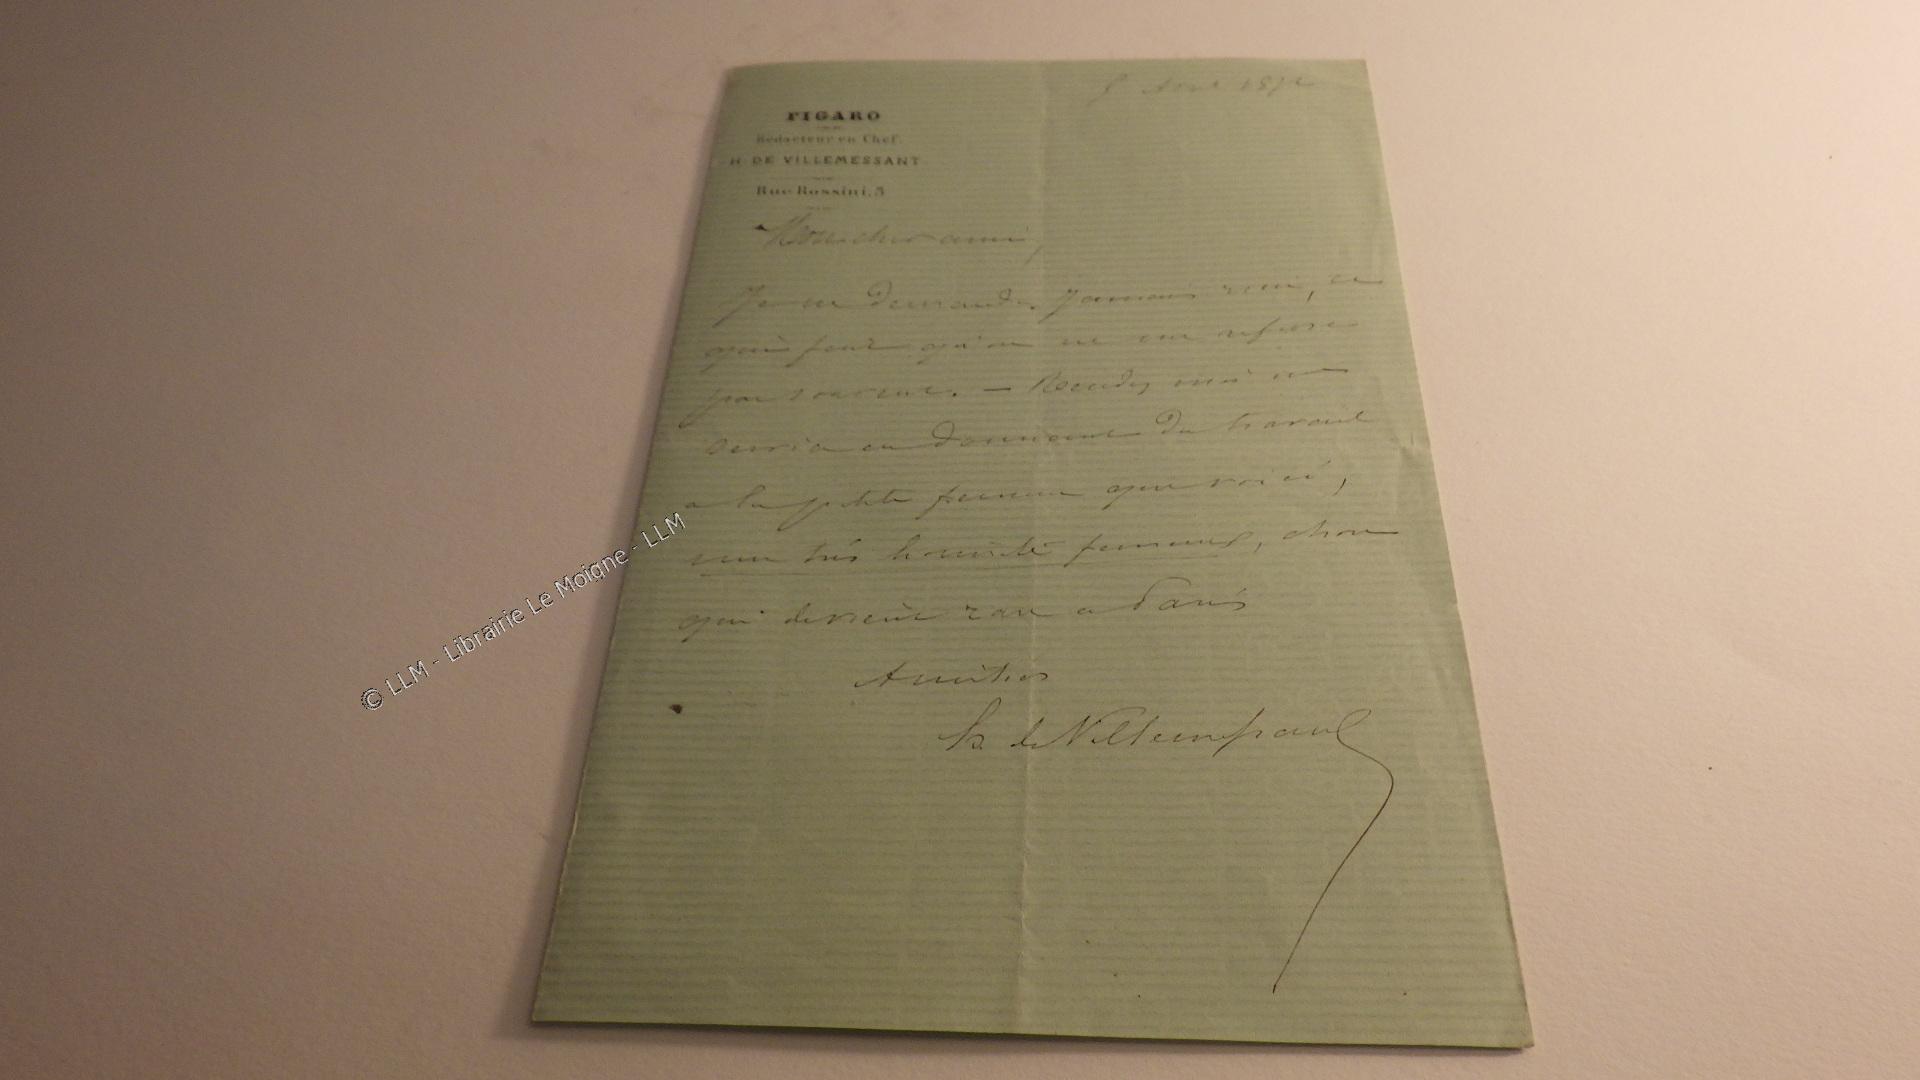 5 Avril 1872
FIGARO
Rédacteur en Chef.
H. DE VILLEMESSANT
Rue Rossini, 3
Mon cher ami,
Je ne demande jamais rien, ce
qui fait qu'on ne me refuse
pas souvent. — Rendez moi un
service en donnant du travail
a la petite femme que voici,
une très honnête femme, chose
qui devient rare a Paris
Amitiés
h. de Villemessant
© LLM - Librairie Le Moigne - LLM